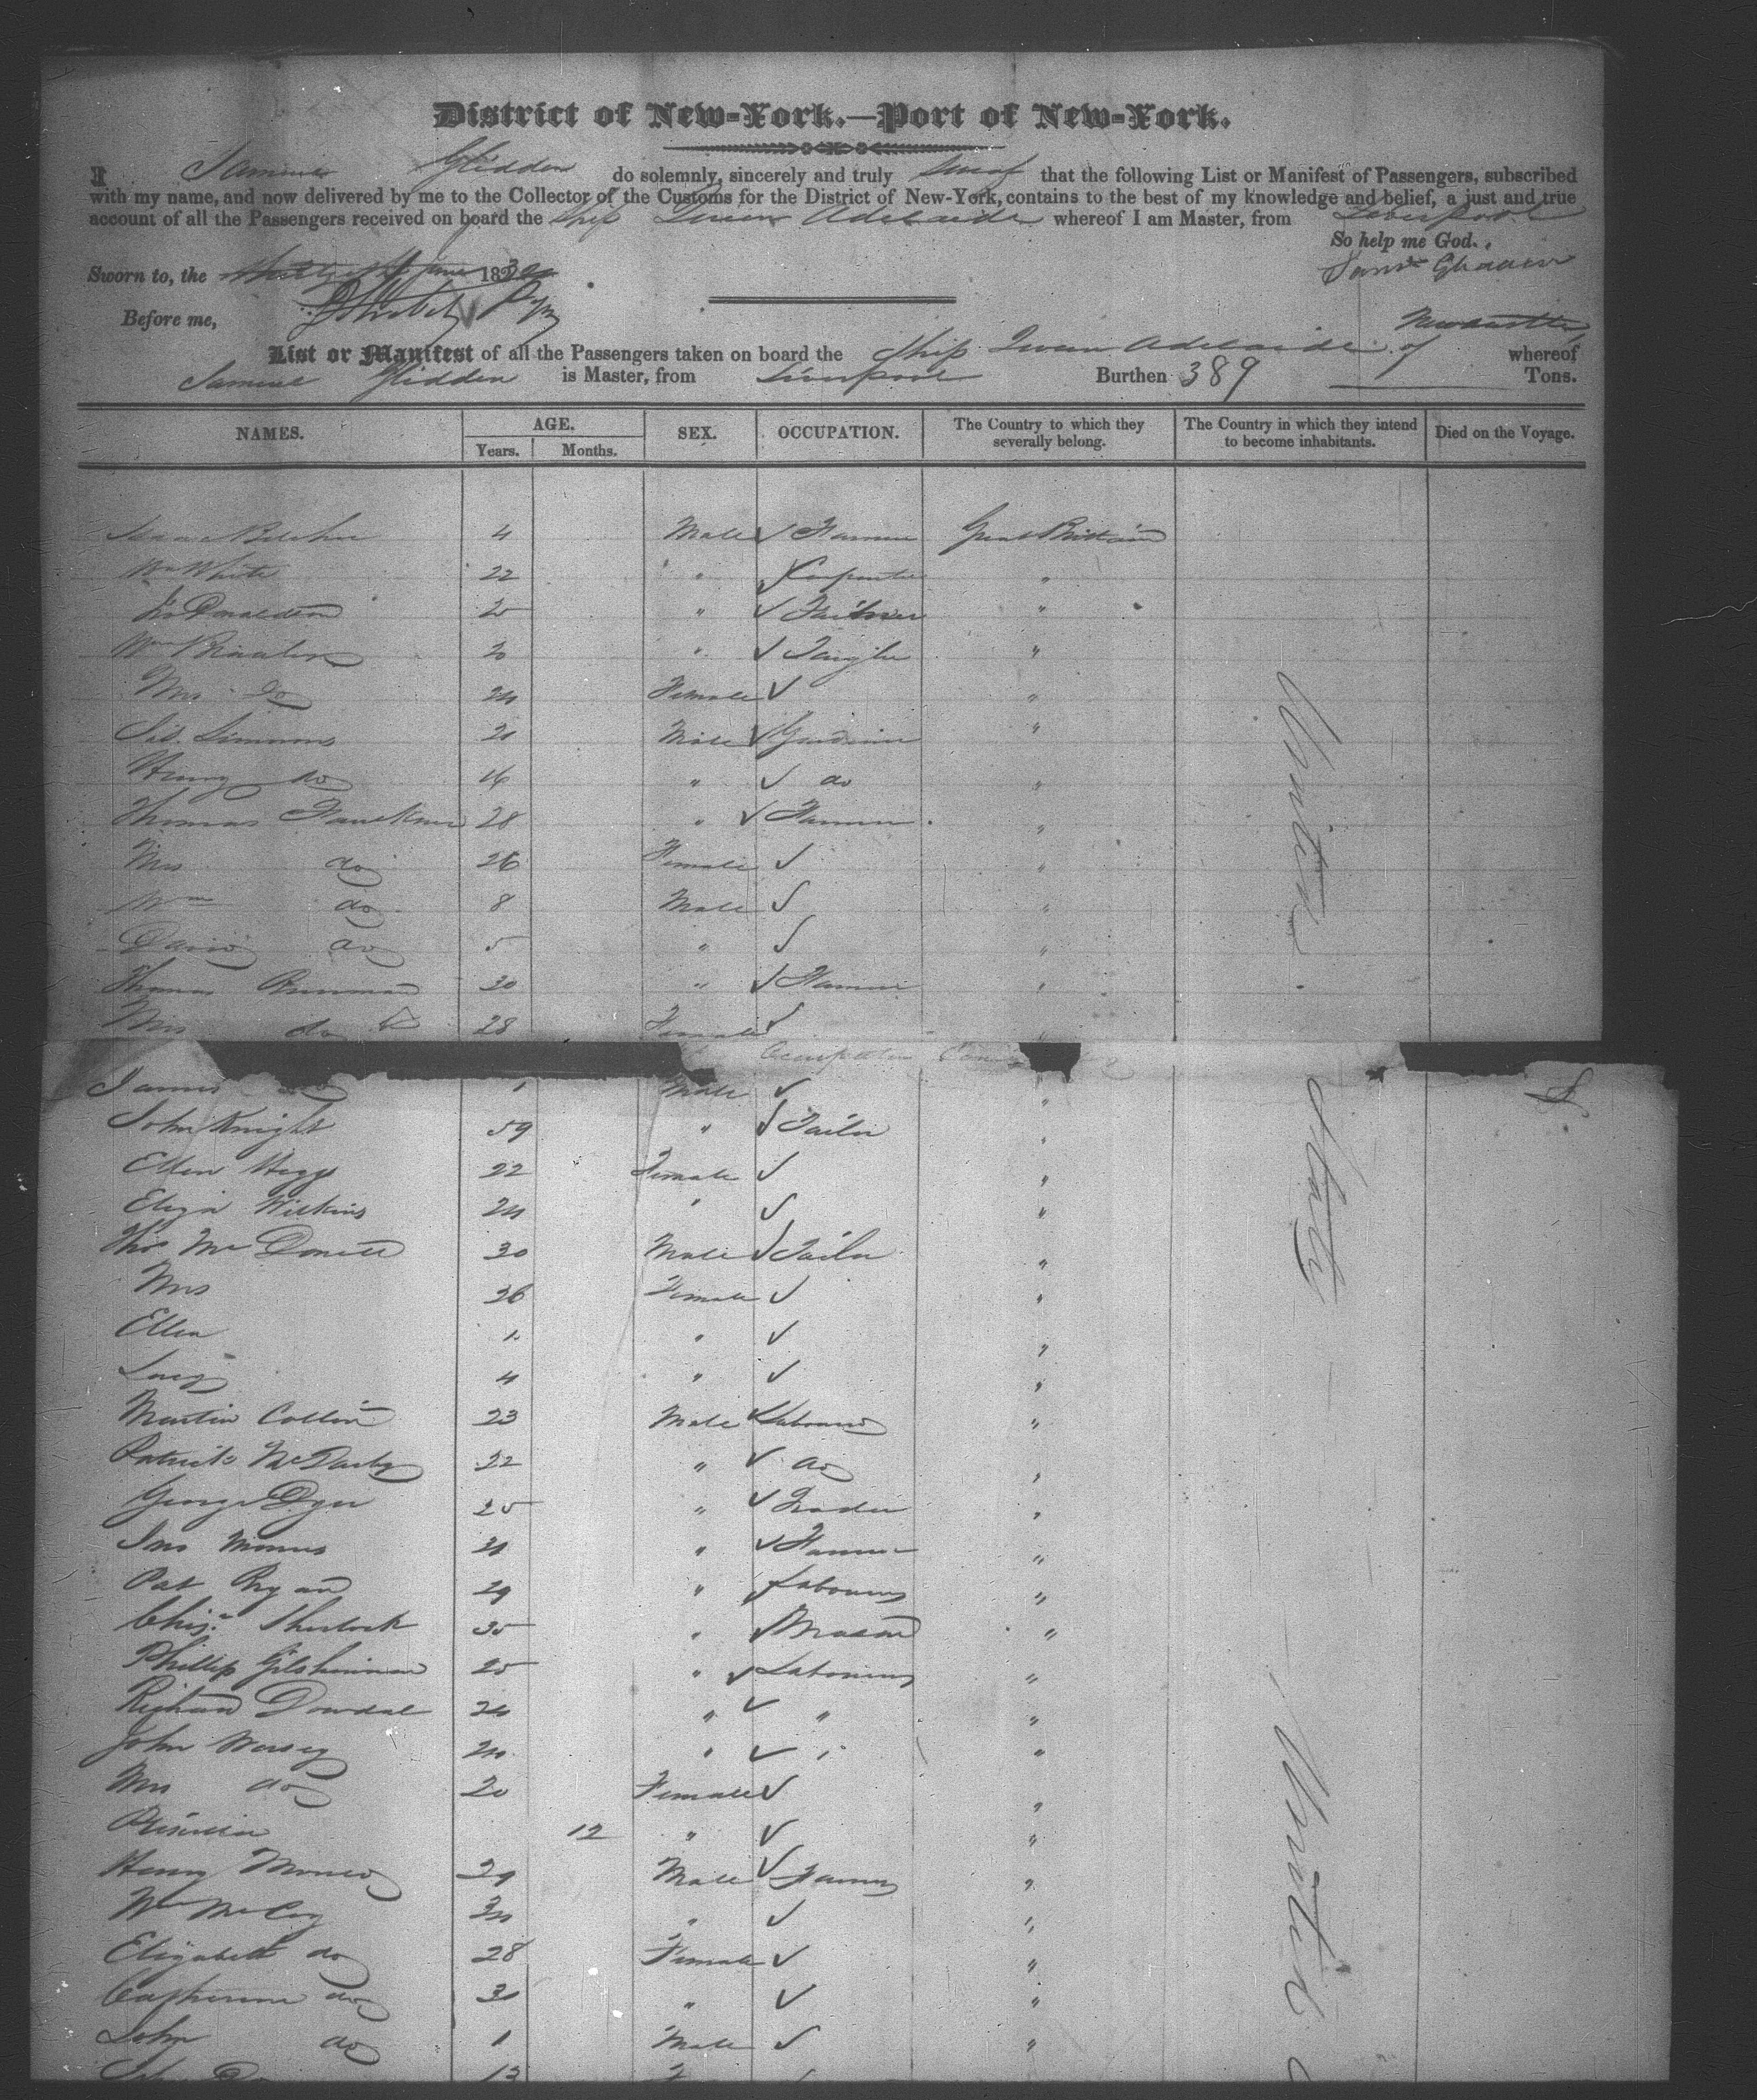 District of New-York.—Port of New-York.
I Samuel Glidden do solemnly, sincerely and truly swear that the following List or Manifest of Passengers, subscribed
with my name, and now delivered by me to the Collector of the Customs for the District of New-York, contains to the best of my knowledge and belief, a just and true
account of all the Passengers received on board the Ship Queen Adelaide whereof I am Master, from Liverpool
So help me God.
Sworn to, the June 183
Saml Glidden
Before me,
List or Manifest of all the Passengers taken on board the Ship Queen Adelaide of Newcastle whereof
Samuel Glidden is Master, from Liverpool Burthen 389 Tons.
NAMES. AGE. Years. Months. SEX. OCCUPATION. The Country to which they severally belong. The Country in which they intend to become inhabitants. Died on the Voyage.
Male Farmer Great Brittain
Wm White 22 " Carpenter "
Donaldson 25 " "
Wm 20 " "
Mrs do 24 Female "
Simmons Male Gardiner "
Henry do 16 " do "
Thomas Faulkner 28 " Farmer "
Mrs do 26 Female "
Wm do 8 Male "
David do 5 " "
Thomas 30 " Farmer "
Mrs do 28 Female "
Occupation
James do 1 Male "
John Knight 59 " Tailor "
Ellen Higgs 22 Female "
Eliza Wilkins 24 " "
Thos Mc Donell 30 Male Tailor "
Mrs 26 Female "
Ellen 1 " "
Lucy 4 " "
Martin Collin 23 Male Labourer "
Patrick McDarby 22 " do "
George Dyer 25 " Trader "
Jno " Farmer "
Pat Ryan 29 " Labourer "
Sherlock 35 " Mason "
Phillip Gilshinnan 25 " Labourer "
Richard Dowdal 24 " " "
John 24 " " "
Mrs do 20 Female "
Priscilla 12 " "
Henry 29 Male Farmer "
Wm McCoy " "
Elizabeth do 28 Female "
Catherine do 3 " "
John do 1 Male "
13
United
States
United